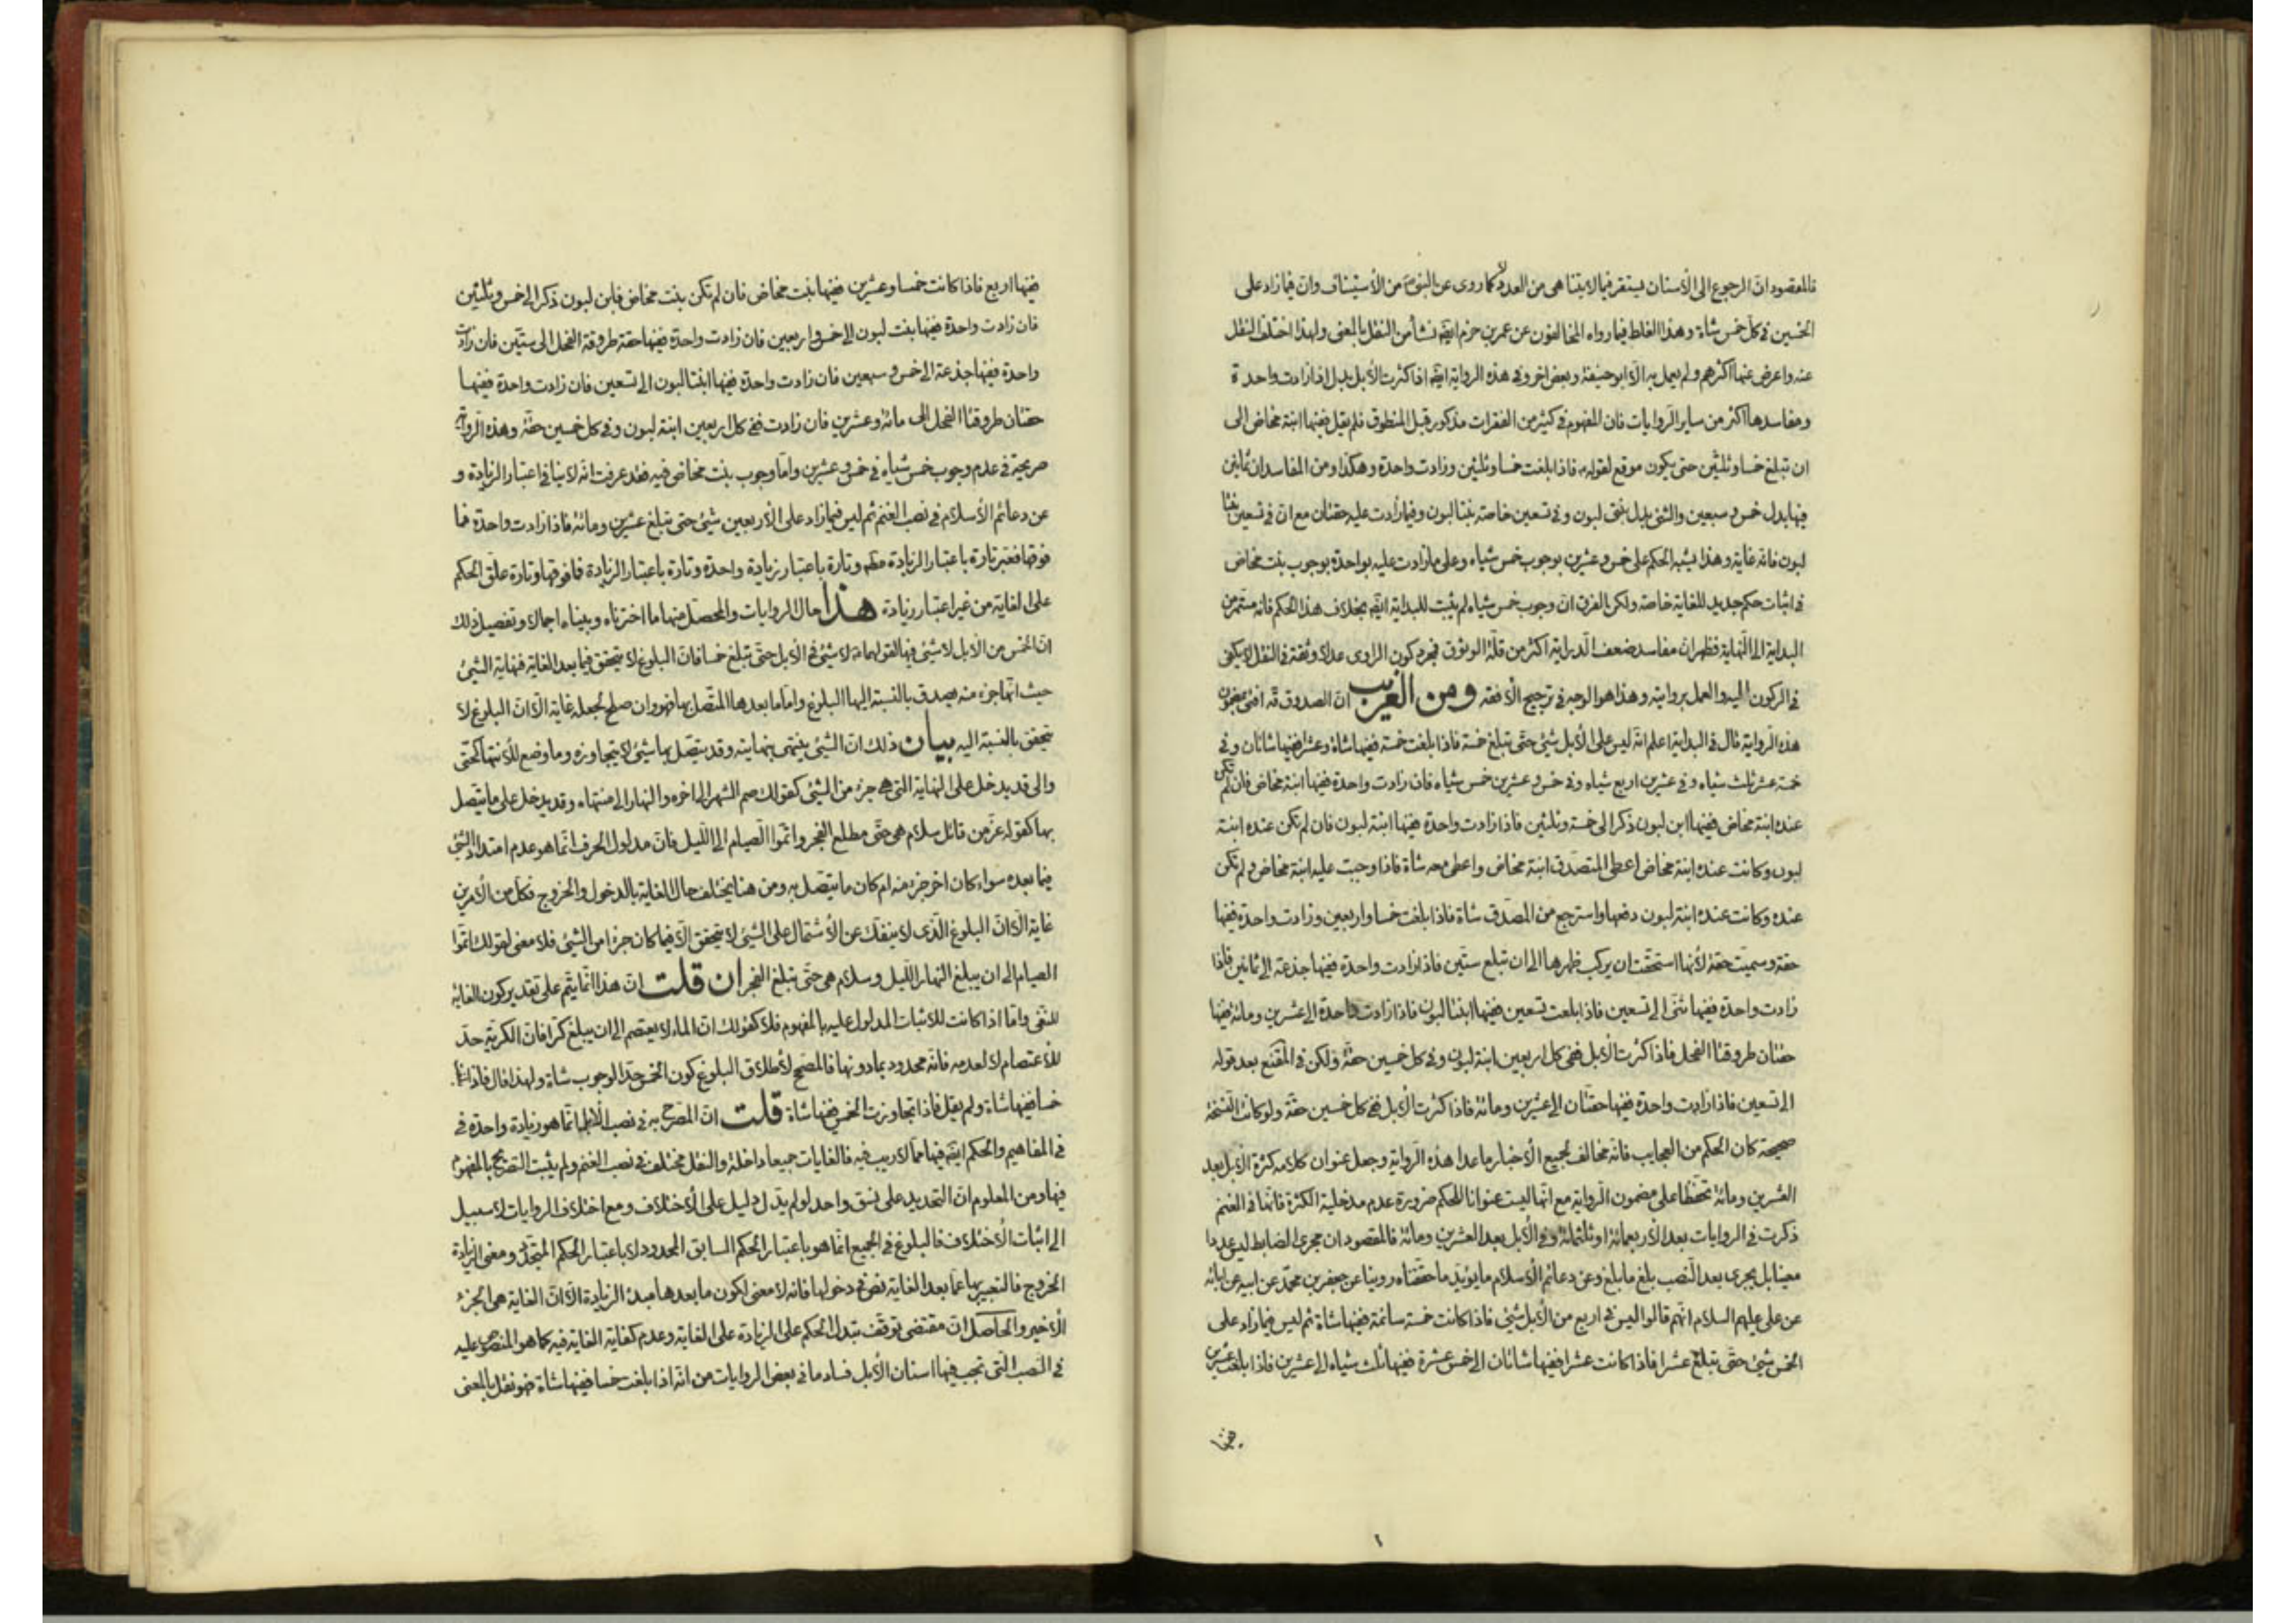 فالمقصود ان الرجوع الى الأسنان يستقر فيما لا يتناهى من العدد لا كما روى عن النبى من الاستيناف وان فيما زاد على
الخمسين فى كل خمس شاة وهذا الغلط فيما رواه المخالفون عن عمر بن حزم ايضا نشأ من النقل بالمعنى ولهذا اختلف النقل
عنه واعرض عنها اكثرهم ولم يعمل به الا ابو حنيفة وبعض اخر وفى هذه الرواية ايضا اذا كثرت الابل بدل اذا زادت واحدة
ومفاسدها اكثر من ساير الروايات فان المفهوم فى كثير من الفقرات مذكور قبل المنطوق فلم يقل ففيها ابنة مخاض الى
ان تبلغ خمسا وثلثين حتى يكون موقع لقوله فاذا بلغت خمسا وثلثين وزادت واحدة وهكذا ومن المفاسد ان ثمانين
فيها بدل خمس وسبعين والثنى بدل بنتى لبون وفى تسعين خاصة بنتا لبون وفيما زادت عليه حقتان مع ان فى تسعين بنتا
لبون فانه غاية وهذا يشبه الحكم على خمس وعشرين بوجوب خمس شياه وعلى ما زادت عليه بواحدة بوجوب بنت مخاض
فى اثبات حكم جديد للغاية خاصة ولكن الفرق ان وجوب خمس شياه لم يثبت للبداية ايضا بخلاف هذا الحكم فانه مستمر من
البداية الى النهاية فظهر ان مفاسد ضعف الدراية اكثر من قلة الوثوق فمجرد كون الراوى عدلا وثقة فى النقل لا يكفى
فى الركون اليه والعمل بروايته وهذا هو الوجه فى ترجيح الأفقه ومن الغريب ان الصدوق قه افتى بمضمون
هذه الرواية قال فى الهداية اعلم انه ليس على الابل شئ حتى تبلغ خمسة فاذا بلغت خمسة ففيها شاة وعشر ففيها شاتان وفى
خمسة عشر ثلث شياه وفى عشرين اربع شياه وفى خمس وعشرين خمس شياه فان زادت واحدة ففيها ابنة مخاض فان لم تكن
عنده ابنة مخاض ففيها ابن لبون ذكر الى خمسة وثلثين فاذا زادت واحدة ففيها ابنة لبون فان لم تكن عنده ابنة
لبون وكانت عنده ابنة مخاض اعطى المتصدق ابنة مخاض واعطى معه شاة فاذا وجبت عليه ابنة مخاض ولم تكن
عنده وكانت عنده ابنة لبون دفعها واسترجع من المصدق شاة فاذا بلغت خمسا واربعين وزادت واحدة ففيها
حقة وسميت حقة لأنها استحقت ان يركب ظهرها الى ان تبلغ ستين فاذا زادت واحدة ففيها جذعة الى ثمانين فاذا
زادت واحدة ففيها ثنى الى تسعين فاذا بلغت تسعين ففيها ابنتا لبون فاذا زادت واحدة الى عشرين ومائة ففيها
حقتان طروقتا الفحل فاذا كثرت الابل ففى كل اربعين ابنة لبون وفى كل خمسين حقة ولكن فى المقنع بعد قوله
الى تسعين فاذا زادت واحدة ففيها حقتان الى عشرين ومائة فاذا كثرت الابل ففى كل خمسين حقة ولو كانت النسخة
صحيحة كان الحكم من العجايب فانه مخالف لجميع الأخبار ما عدا هذه الرواية وجعل عنوان كلامه كثرة الابل بعد
العشرين ومائة تحفظا على مضمون الرواية مع انها ليست عنوانا للحكم ضرورة عدم مدخلية الكثرة فانها فى الغنم
ذكرت فى الروايات بعد الأربعمائة او ثلثمائة وفى الابل بعد العشرين ومائة فالمقصود ان مجرى الضابط ليس عددا
معينا بل يجرى بعد النصب بلغ ما بلغ وعن دعائم الاسلام ما يؤيد ما حققناه روينا عن جعفر بن محمد عن ابيه عن ابائه
عن على عليهم السلام انهم قالوا ليس فى اربع من الابل شئ فاذا كانت خمسة سائمة ففيها شاة ثم ليس فيما زاد على
الخمس شئ حتى تبلغ عشرا فاذا كانت عشرا ففيها شاتان الى خمس عشرة ففيها ثلث شياه الى عشرين فاذا بلغت عشرين
ففيها
ففيها اربع فاذا كانت خمسا وعشرين ففيها بنت مخاض فان لم تكن بنت مخاض فابن لبون ذكر الى خمس وثلثين
فان زادت واحدة ففيها بنت لبون الى خمس واربعين فان زادت واحدة ففيها حقة طروقة الفحل الى ستين فان زادت
واحدة ففيها جذعة الى خمس وسبعين فان زادت واحدة ففيها ابنتا لبون الى تسعين فان زادت واحدة ففيها
حقتان طروقتا الفحل الى مائة وعشرين فان زادت ففى كل اربعين ابنة لبون وفى كل خمسين حقة وهذه الرواية
صريحة فى عدم وجوب خمس شياه فى خمس وعشرين واما وجوب بنت مخاض فيه فقد عرفت انه لا ينافى اعتبار الزيادة و
عن دعائم الأسلام فى نصب الغنم ثم ليس فيما زاد على الأربعين شئ حتى تبلغ عشرين ومائة فاذا زادت واحدة فما
فوقها فعبر تارة باعتبار الزيادة وتارة باعتبار زيادة واحدة وتارة باعتبار الزيادة فما فوقها وتارة علق الحكم
على الغاية من غير اعتبار زيادة هذا حال الروايات والمحصل منها ما اخترناه وبيناه اجمالا وتفصيل ذلك
ان الخمس من الابل لا شئ فيها لقولهما ع لا شئ فى الابل حتى تبلغ خمسا فان البلوغ لا يتحقق فيما بعد الغاية فنهاية الشئ
حيث انها جزء منه يصدق بالنسبة اليها البلوغ واما ما بعدها المتصل بها فهو وان صلح لجعله غاية الا ان البلوغ لا
يتحقق بالنسبة اليه بيان ذلك ان الشئ ينتهى بنهايته وقد يتصل بها شئ لا يتجاوزه وما وضع للأنتهاء كحتى
والى قد يدخل على النهاية التى هى جزء من الشئ كقولك صم الشهر الى اخره والنهار الى منتهاه وقد يدخل على ما يتصل
بها كقوله عز من قائل سلام هى حتى مطلع الفجر واتموا الصيام الى الليل فان مدلول الحرف انما هو عدم امتداد الشئ
فيما بعده سواء كان اخر جزء منه ام كان ما يتصل به ومن هنا يختلف حال الغاية بالدخول والخروج فكل من الأمرين
غاية الا ان البلوغ الذى لا ينفك عن الأشتمال على الشئ لا يتحقق الا فيما كان جزءا من الشئ فلا معنى لقولك اتموا
الصيام الى ان يبلغ النهار الليل وسلام هى حتى تبلغ الفجر ان قلت ان هذا انما يتم على تقدير كون الغاية
للنفى واما اذا كانت للاثبات المدلول عليه بالمفهوم فلا كقولك ان الماء لا يعتصم الى ان يبلغ كرا فان الكرية حد
للأعتصام لا لعدمه فانه محدود بما دونها فالمصحح لأطلاق البلوغ كون الخمس حدا لوجوب شاة ولهذا قال فاذا بلغت
خمسا ففيها شاة ولم يقل فاذا تجاوزت الخمس ففيها شاة قلت ان المصرح به فى نصب الابل انما هو زيادة واحدة فى
فى المفاهيم والحكم ايضا فيها مما لا ريب فيه فالغايات جميعا داخلة والنقل مختلف فى نصب الغنم ولم يثبت التصريح بالمفهوم
فيها ومن المعلوم ان التحديد على نسق واحد لو لم يدل دليل على الأختلاف ومع اختلاف الروايات لا سبيل
الى اثبات الأختلاف فالبلوغ فى الجميع انما هو باعتبار الحكم السابق المحدود لا باعتبار الحكم المتجدد ومعنى الزيادة
الخروج فالتعبير بها عما بعد الغاية نص فى دخولها فانه لا معنى لكون ما بعدها مبدء الزيادة الا ان الغاية هى الجزء
الأخير والحاصل ان مقتضى توقف تبدل الحكم على الزيادة على الغاية وعدم كفاية الغاية فيه كما هو المنصوص عليه
فى النصب التى تجب فيها اسنان الأبل فساد ما فى بعض الروايات من انه اذا بلغت خمسا ففيها شاة فهو نقل بالمعنى